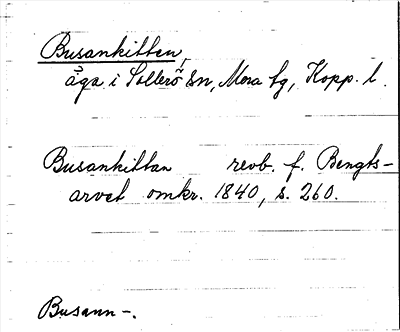 Busankittan,
äga i Sollerö Sn, Mora tg, Kopp. l.
Busankittan revb. f. Bengts-
arvet omkr. 1840, s. 260.
Busann-.